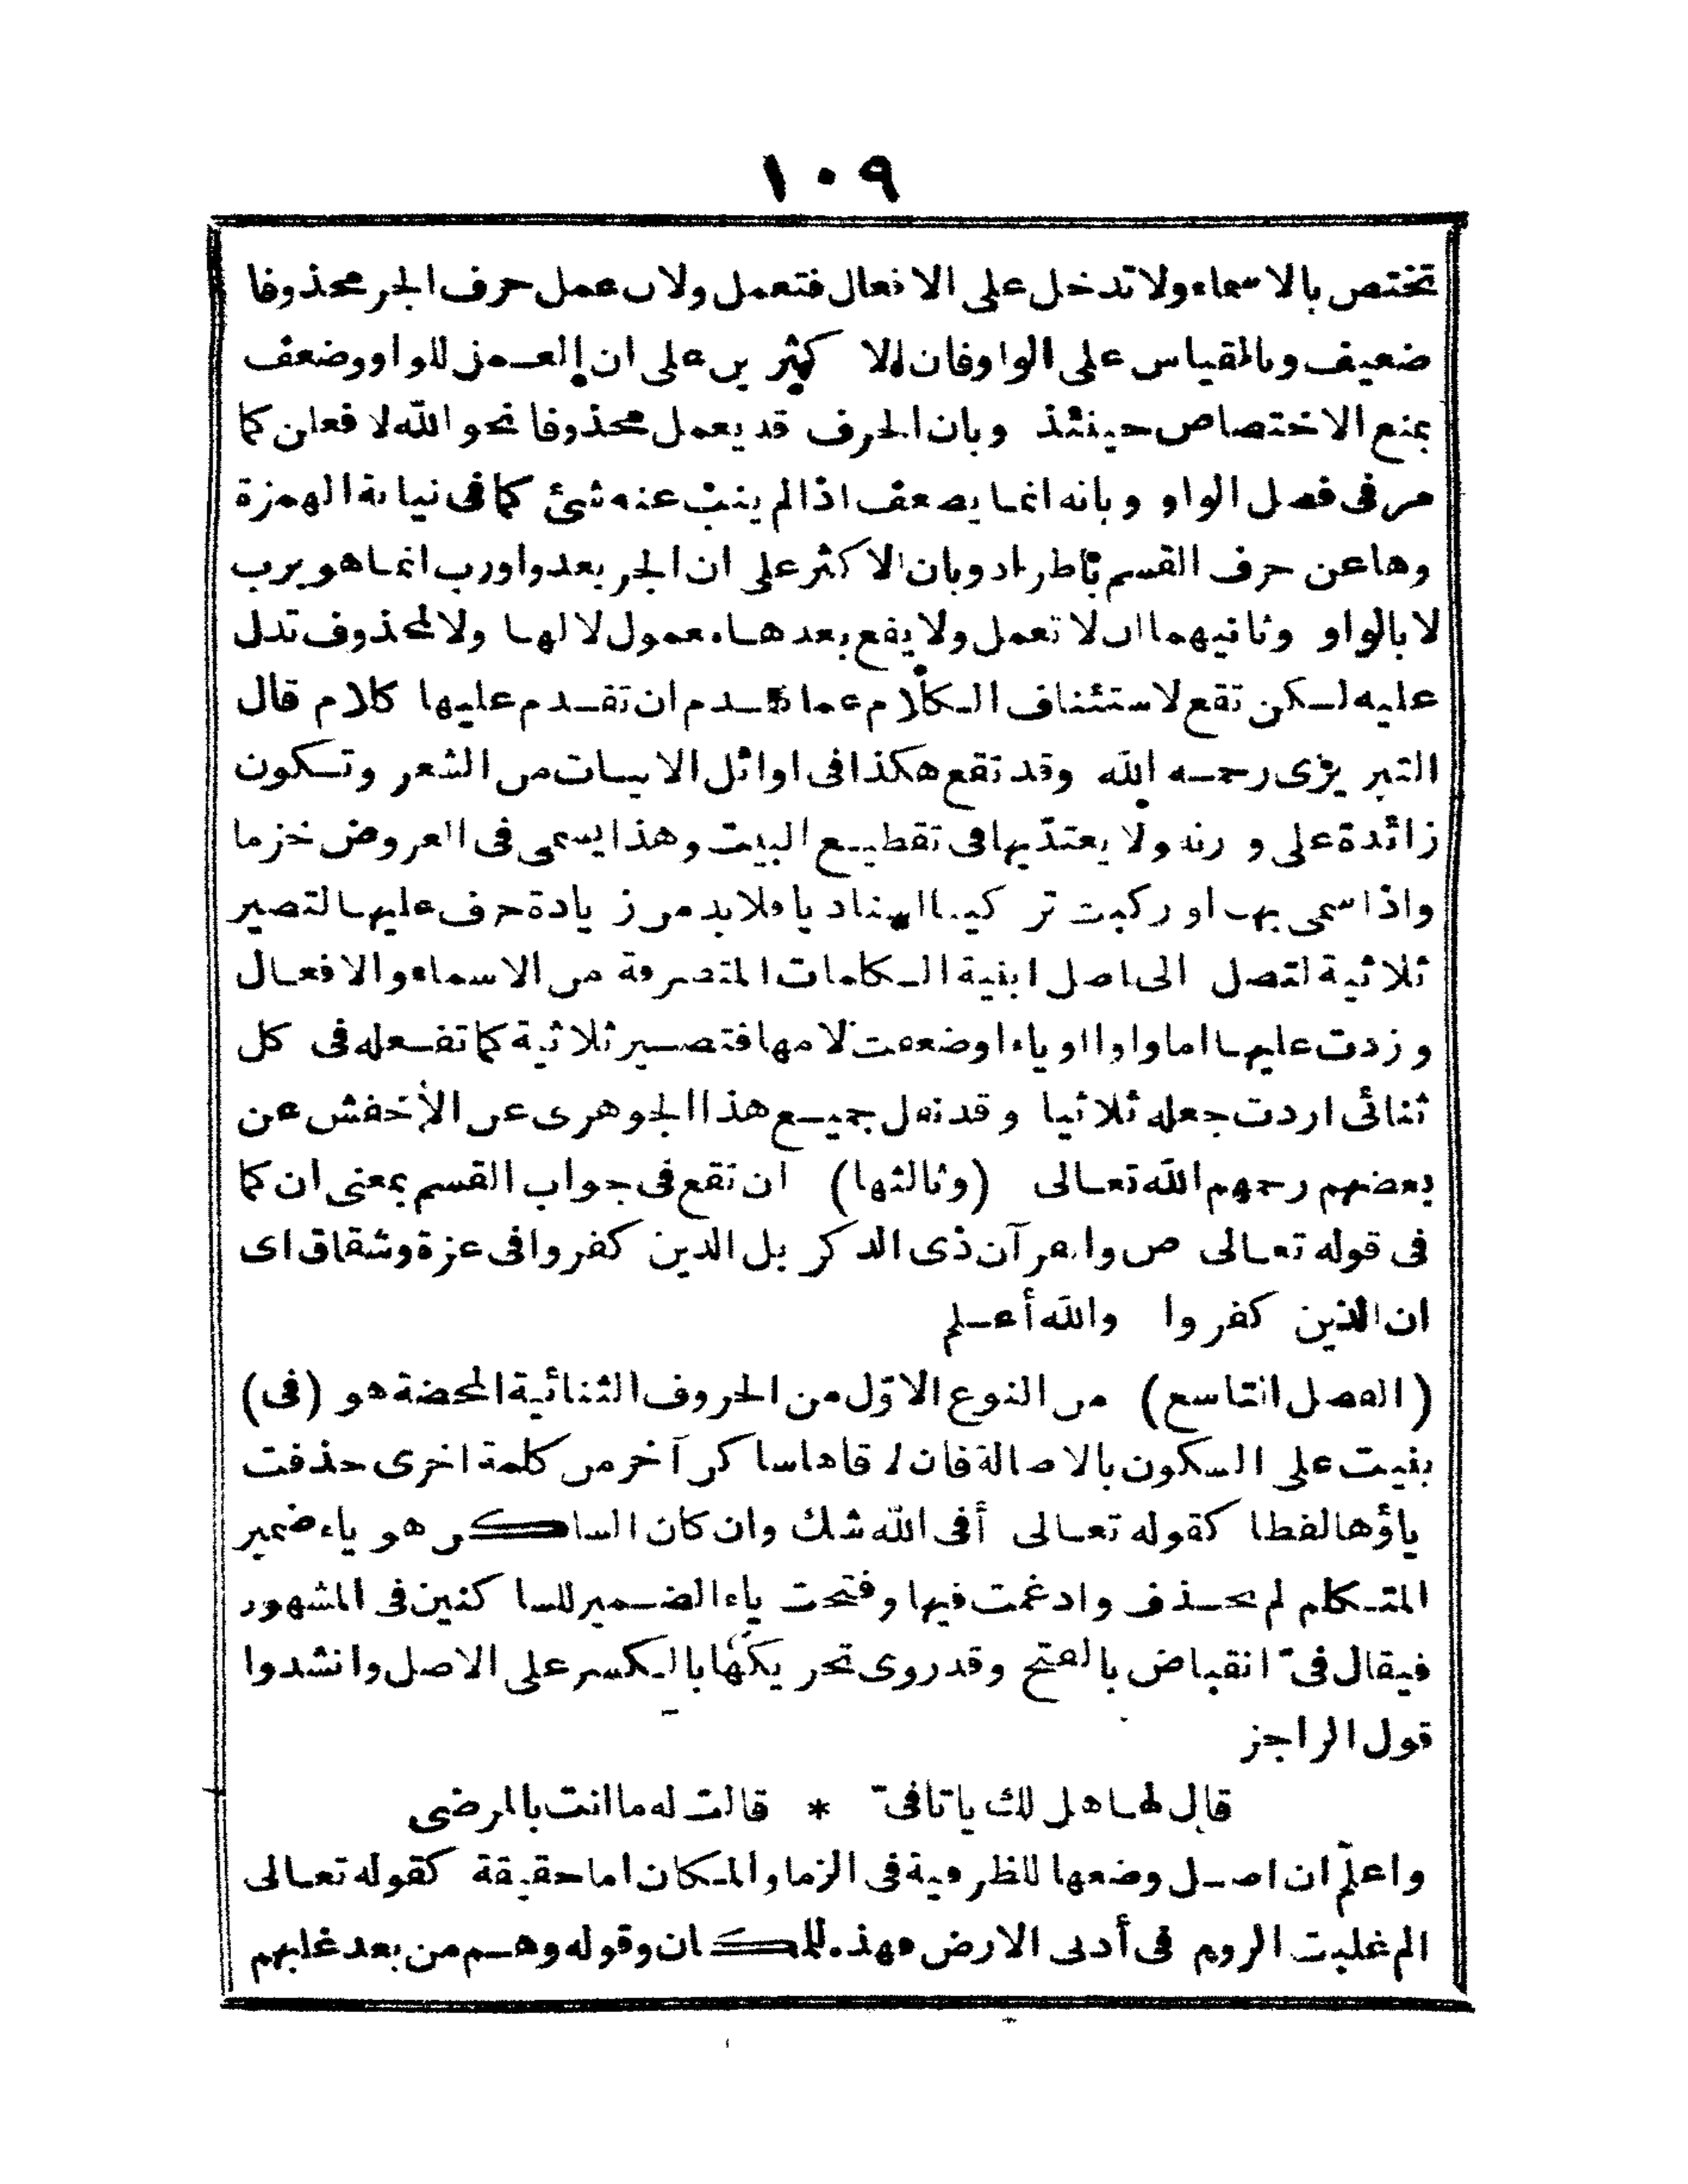 ١٠٩
تختص بالاسماء ولا تدخل على الافعال فتعمل ولان عمل حرف الجر محذوفا
ضعيف وبالقياس على الواو فان الا كثرين على ان العمل للواو وضعف
بمنع الاختصاص حينئذ وبان الحرف قد يعمل محذوفا نحو الله لا فعلن كما
مر فى فصل الواو وبانه انما يضعف اذا لم ينب عنه شئ كما فى نيابة الهمزة
وها عن حرف القسم باطراد وبان الاكثر على ان الجر بعد واو رب انما هو برب
لا بالواو وثانيهما ان لا تعمل ولا يقع بعدها معمول لا لها ولا لمحذوف تدل
عليه لكن تقع لاستئناف الكلام عما قدم ان تقدم عليها كلام قال
التبريزى رحمه الله وقد تقع هكذا فى اوائل الابيات من الشعر وتكون
زائدة على وزنه ولا يعتد بها فى تقطيع البيت وهذا يسمى فى العروض خزما
واذا سمى بها او ركبت تركيبا اسناديا فلا بد من زيادة حرف عليها لتصير
ثلاثية لتصل الى اصل ابنية الكلمات المتصرفة من الاسماء والافعال
وزدت عليها اما واوا او ياء او ضعفت لامها فتصير ثلاثية كما تفعله فى كل
ثنائى اردت جعله ثلاثيا وقد نقل جميع هذا الجوهرى عن الأخفش عن
بعضهم رحمهم الله تعالى (وثالثها) ان تقع فى جواب القسم بمعنى ان كما
فى قوله تعالى ص والقرآن ذى الذكر بل الذين كفروا فى عزة وشقاق اى
ان الذين كفروا والله أعلم
(الفصل التاسع) من النوع الاوّل من الحروف الثنائية المحضة هو (فى)
بنيت على السكون بالاصالة فان لاقاها ساكن آخر من كلمة اخرى حذفت
ياؤها لفظا كقوله تعالى أفى الله شك وان كان الساكن هو ياء ضمير
المتكلم لم تحذف وادغمت فيها وفتحت ياء الضمير للساكنين فى المشهور
فيقال فىّ انقباض بالفتح وقد روى تحريكها بالكسر على الاصل وانشدوا
قول الراجز
قال لها هل لك يا تا فىّ * قالت له ما انت بالمرضى
واعلم ان اصل وضعها للظرفية فى الزما والمكان اما حقيقة كقوله تعالى
الم غلبت الروم فى أدنى الارض فهذه للمكان وقوله وهم من بعد غلبهم